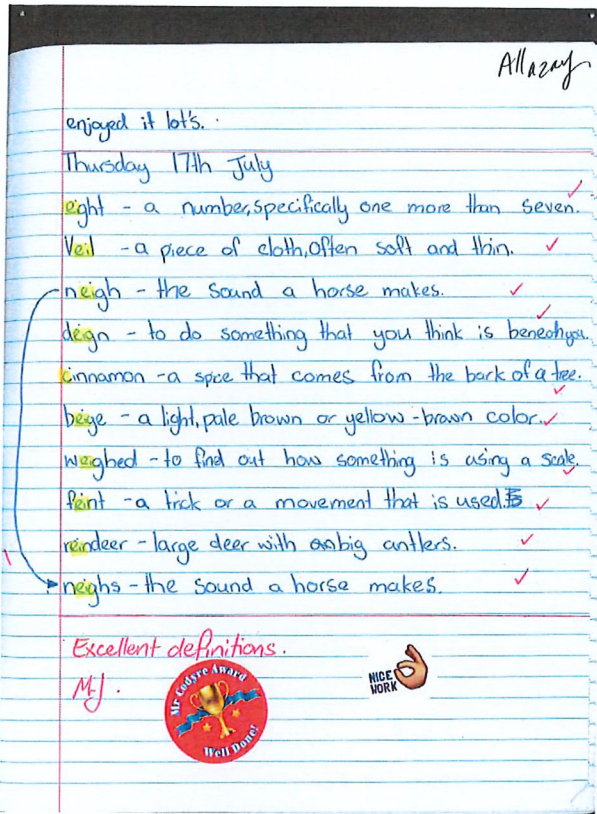 Allazay
enjoyed it lot's.
Thursday 17th July
eight - a number, specifically one more than seven.
Veil - a piece of cloth, often soft and thin.
neigh - the sound a horse makes.
deign - to do something that you think is beneath you.
cinnamon - a spice that comes from the bark of a tree.
beige - a light, pale brown or yellow-brown color.
weighed - to find out how something is using a scale.
feint - a trick or a movement that is used.
reindeer - large deer with big antlers.
neighs - the sound a horse makes.
Excellent definitions.
Mr J.
Mr Codyre Award
Well Done!
NICE
WORK